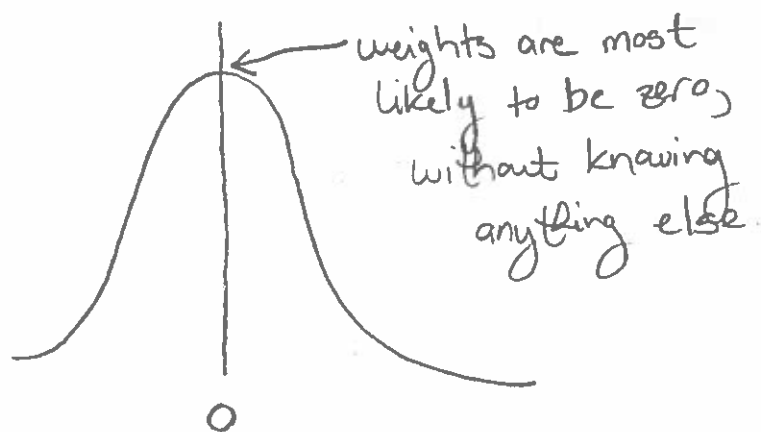 weights are most
likely to be zero,
without knowing
anything else
0